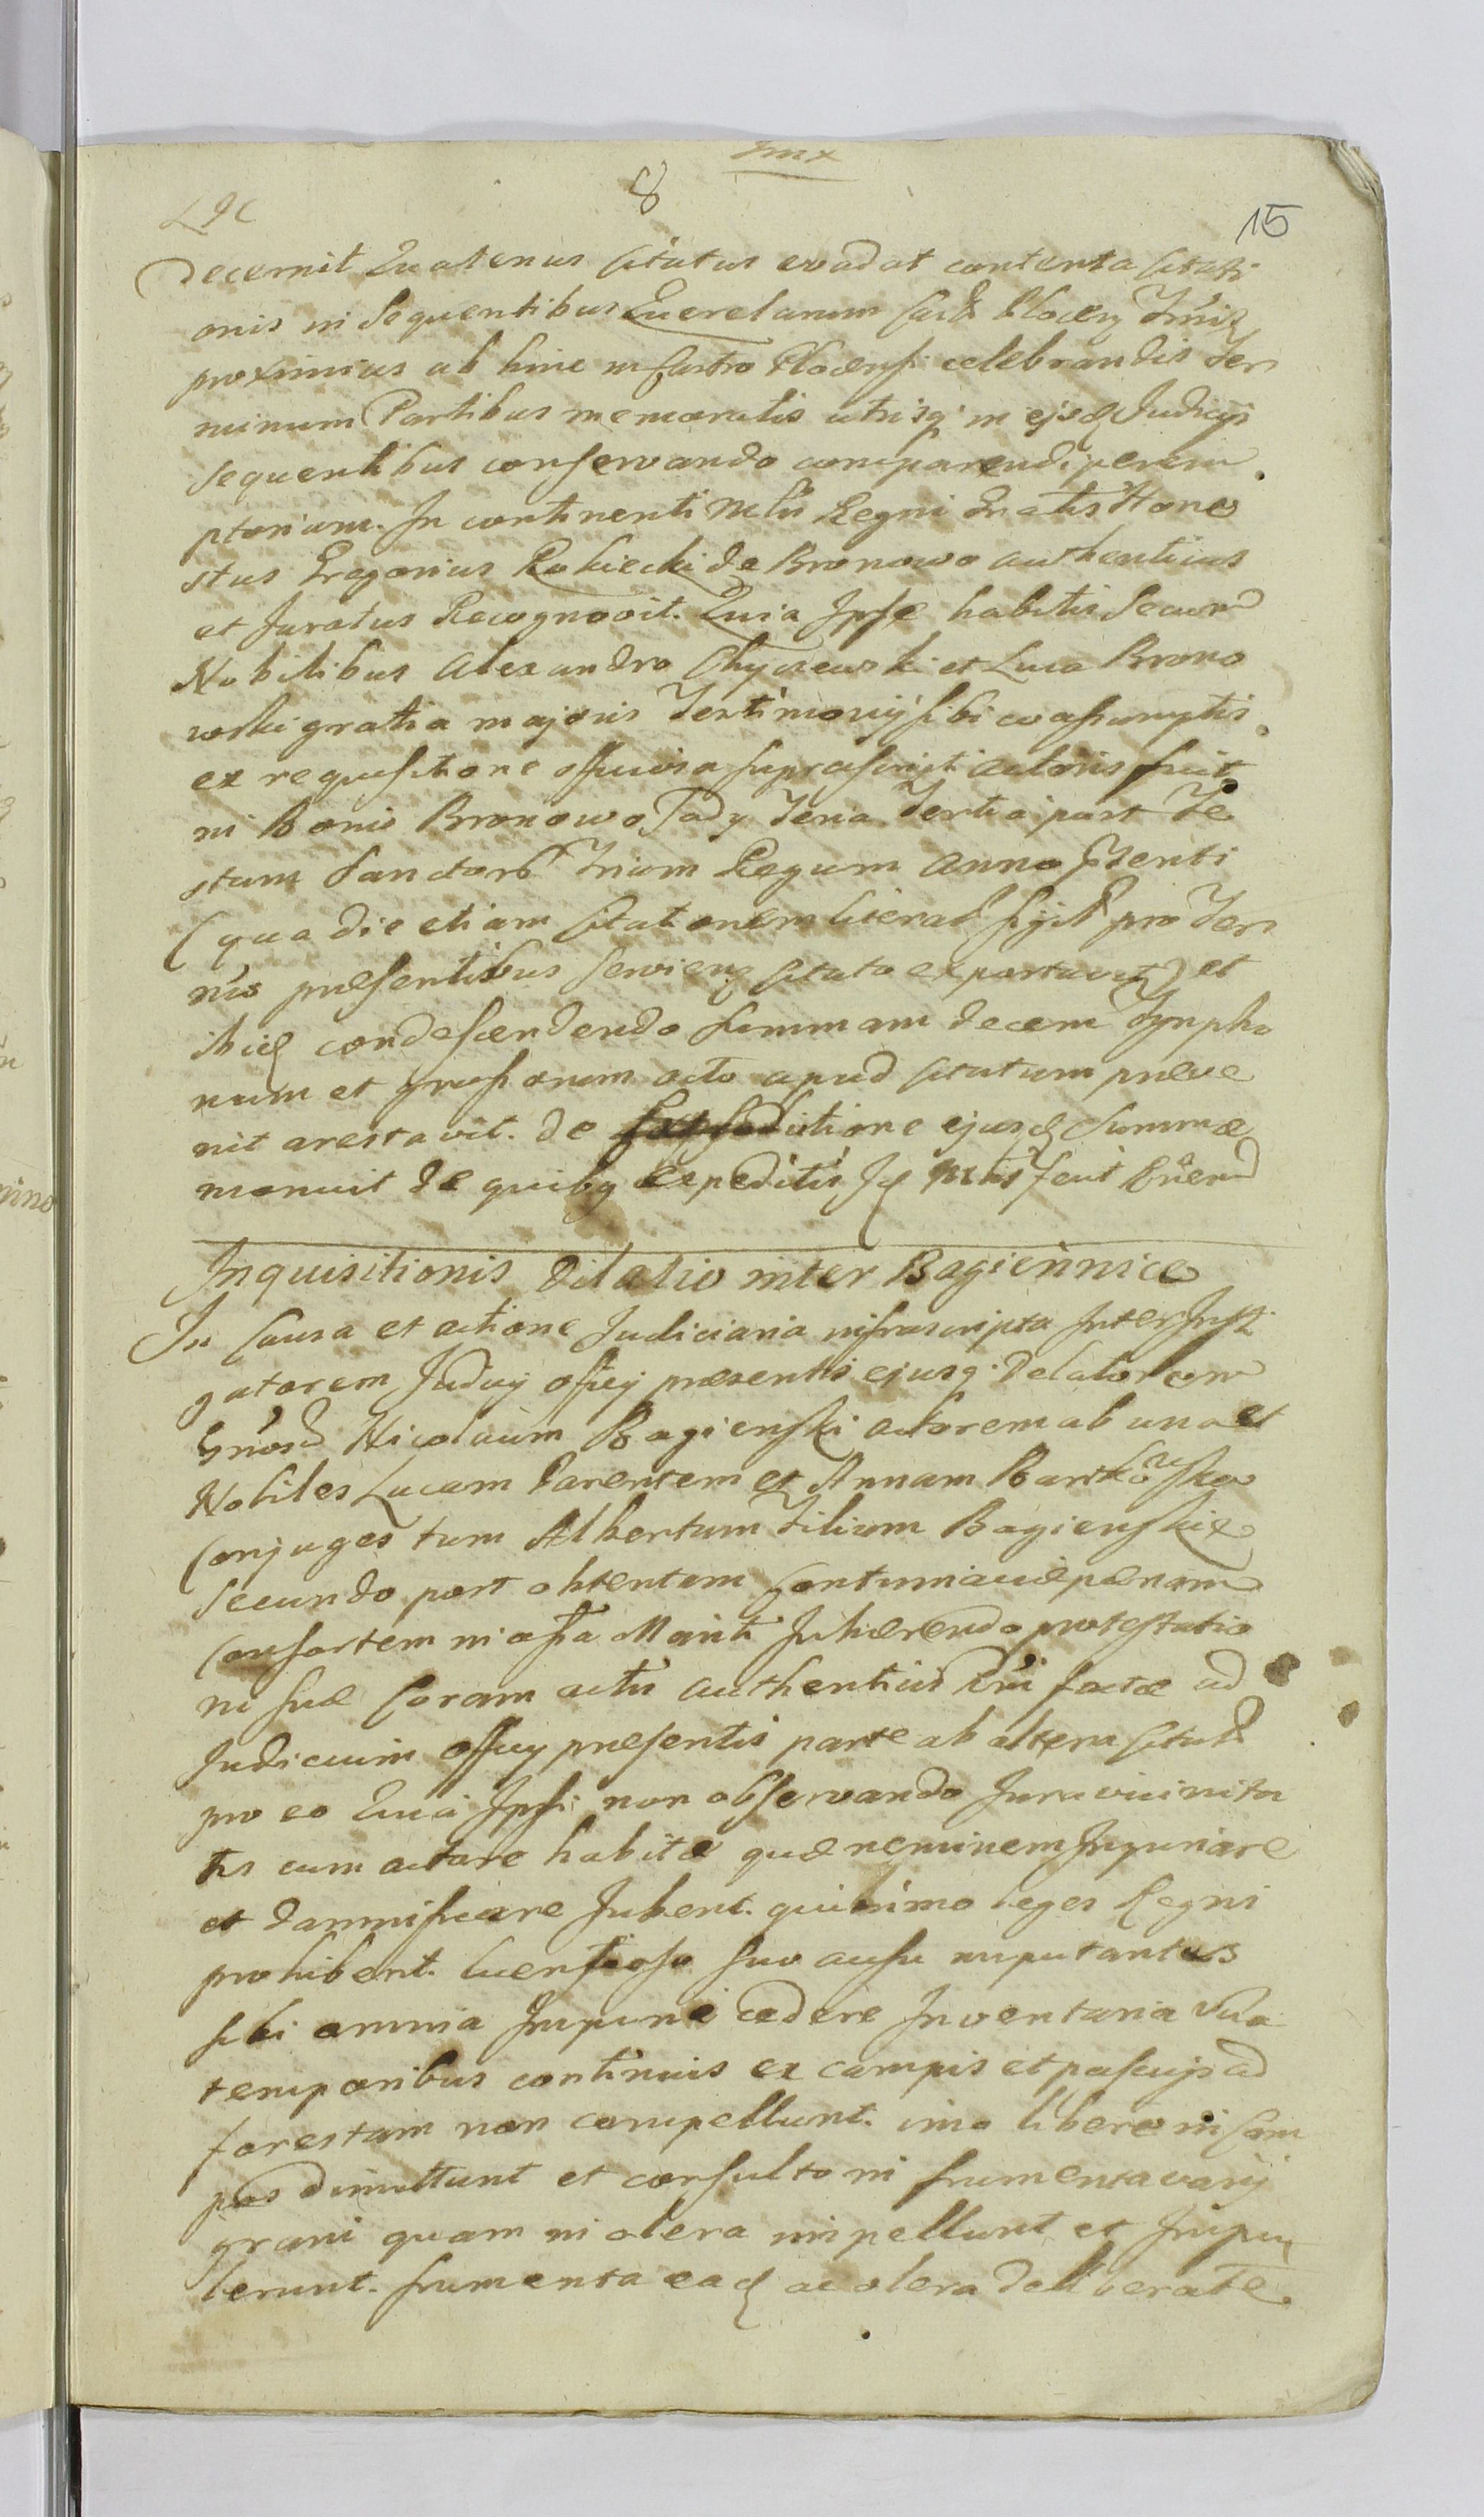 8
15
decernit Quatenus Citatus evadat contenta Citati
onis in Sequentibus Querelarum Plocen
proximius ab hinc in Castro Plocensi celebrandis Ter
minum Partibus memoratis utrisq; in ejusd Judicijs
sequentibus conservando comparendi perem
ptorium. In continenti Regni Hone
stus Gregorius Rokiecki de Bronowo authenticus
et Juratus Recognovit. Quia Ipse habitis Secum
Nobilibus Alexandro et Luca Brono
wski gratia majoris Testimonij sibi coassumptis
ex requisitione officiosa suprascripti actoris fuit
in Bonis Bronowo Sady feria Tertia post Fe
stum Sanctor Trium Regum Anno
(qua die etiam Citationem literal pro Ter
nis præsentibus servien citato exportavit) et
ibid condescendendo summam decem Tympho
num et grossorum octo apud citatum præve
nit arestavit. de ejusd Summæ
monuit de quibq expeditis Jd fecit
Inquisitionis Dilatio inter Bagiennice
In Causa et actione Judiciaria infrascripta Inter Insti
gatorem Judicij officij præsentis ejusq; Delatorem
Nicolaum Bagienski actorem ab una et
Nobiles Lucam Parentem et Annam
Conjuges tum Albertum Filium Bagienskie
Secundo post obtentam Contumaciæ pænam
Consortem in assa Mariti Inhærendo protestatio
ni suæ Coram actis authenticis factæ ad
Judicium officij præsentis parte ab altera Citat
pro eo Quia Ipsi non observando Jura vicinita
tis cum actore habitæ quæ neminem Injuriare
et damnificare Jubent. quinimo leges Regni
prohibent. suo ausu imputantes
sibi omnia Impune cedere Inventaria sua
temporibus continuis ex campis et pascuis ad
forestam non compellunt. imo libere in Cam
pos dimittunt et consulto in frumenta varij
grani quam in olera impellunt et Impu
lerunt. frumenta ead ac olera deliberate